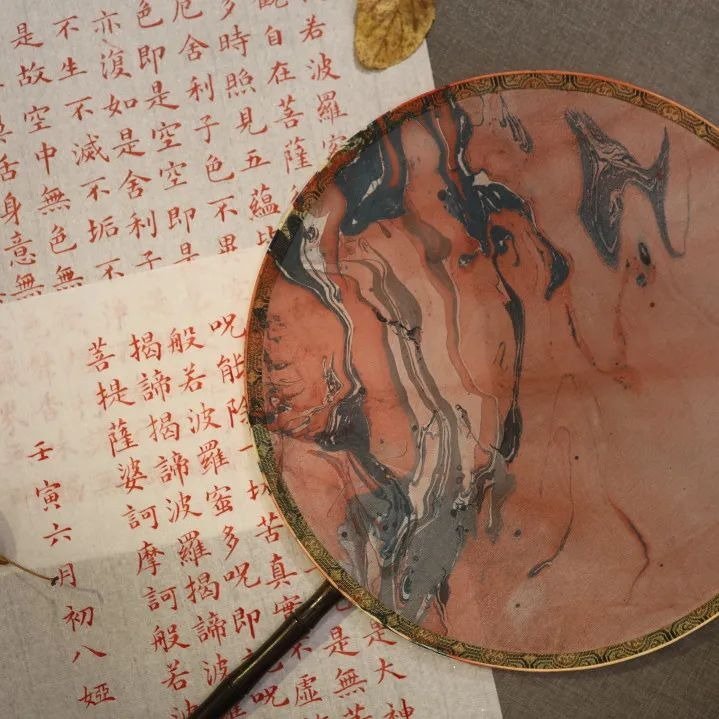 若波羅
自在菩薩
多時照見五蘊
厄舍利子色不異
色即是空空即是
亦復如是舍利子
不生不滅不垢不
是故空中無色無
舌身意無
是大神
是無
呪能除一切苦真實不虛
般若波羅蜜多呪即說呪
揭諦揭諦波羅揭諦波
菩提薩婆訶摩訶般若波
壬寅六月初八婭